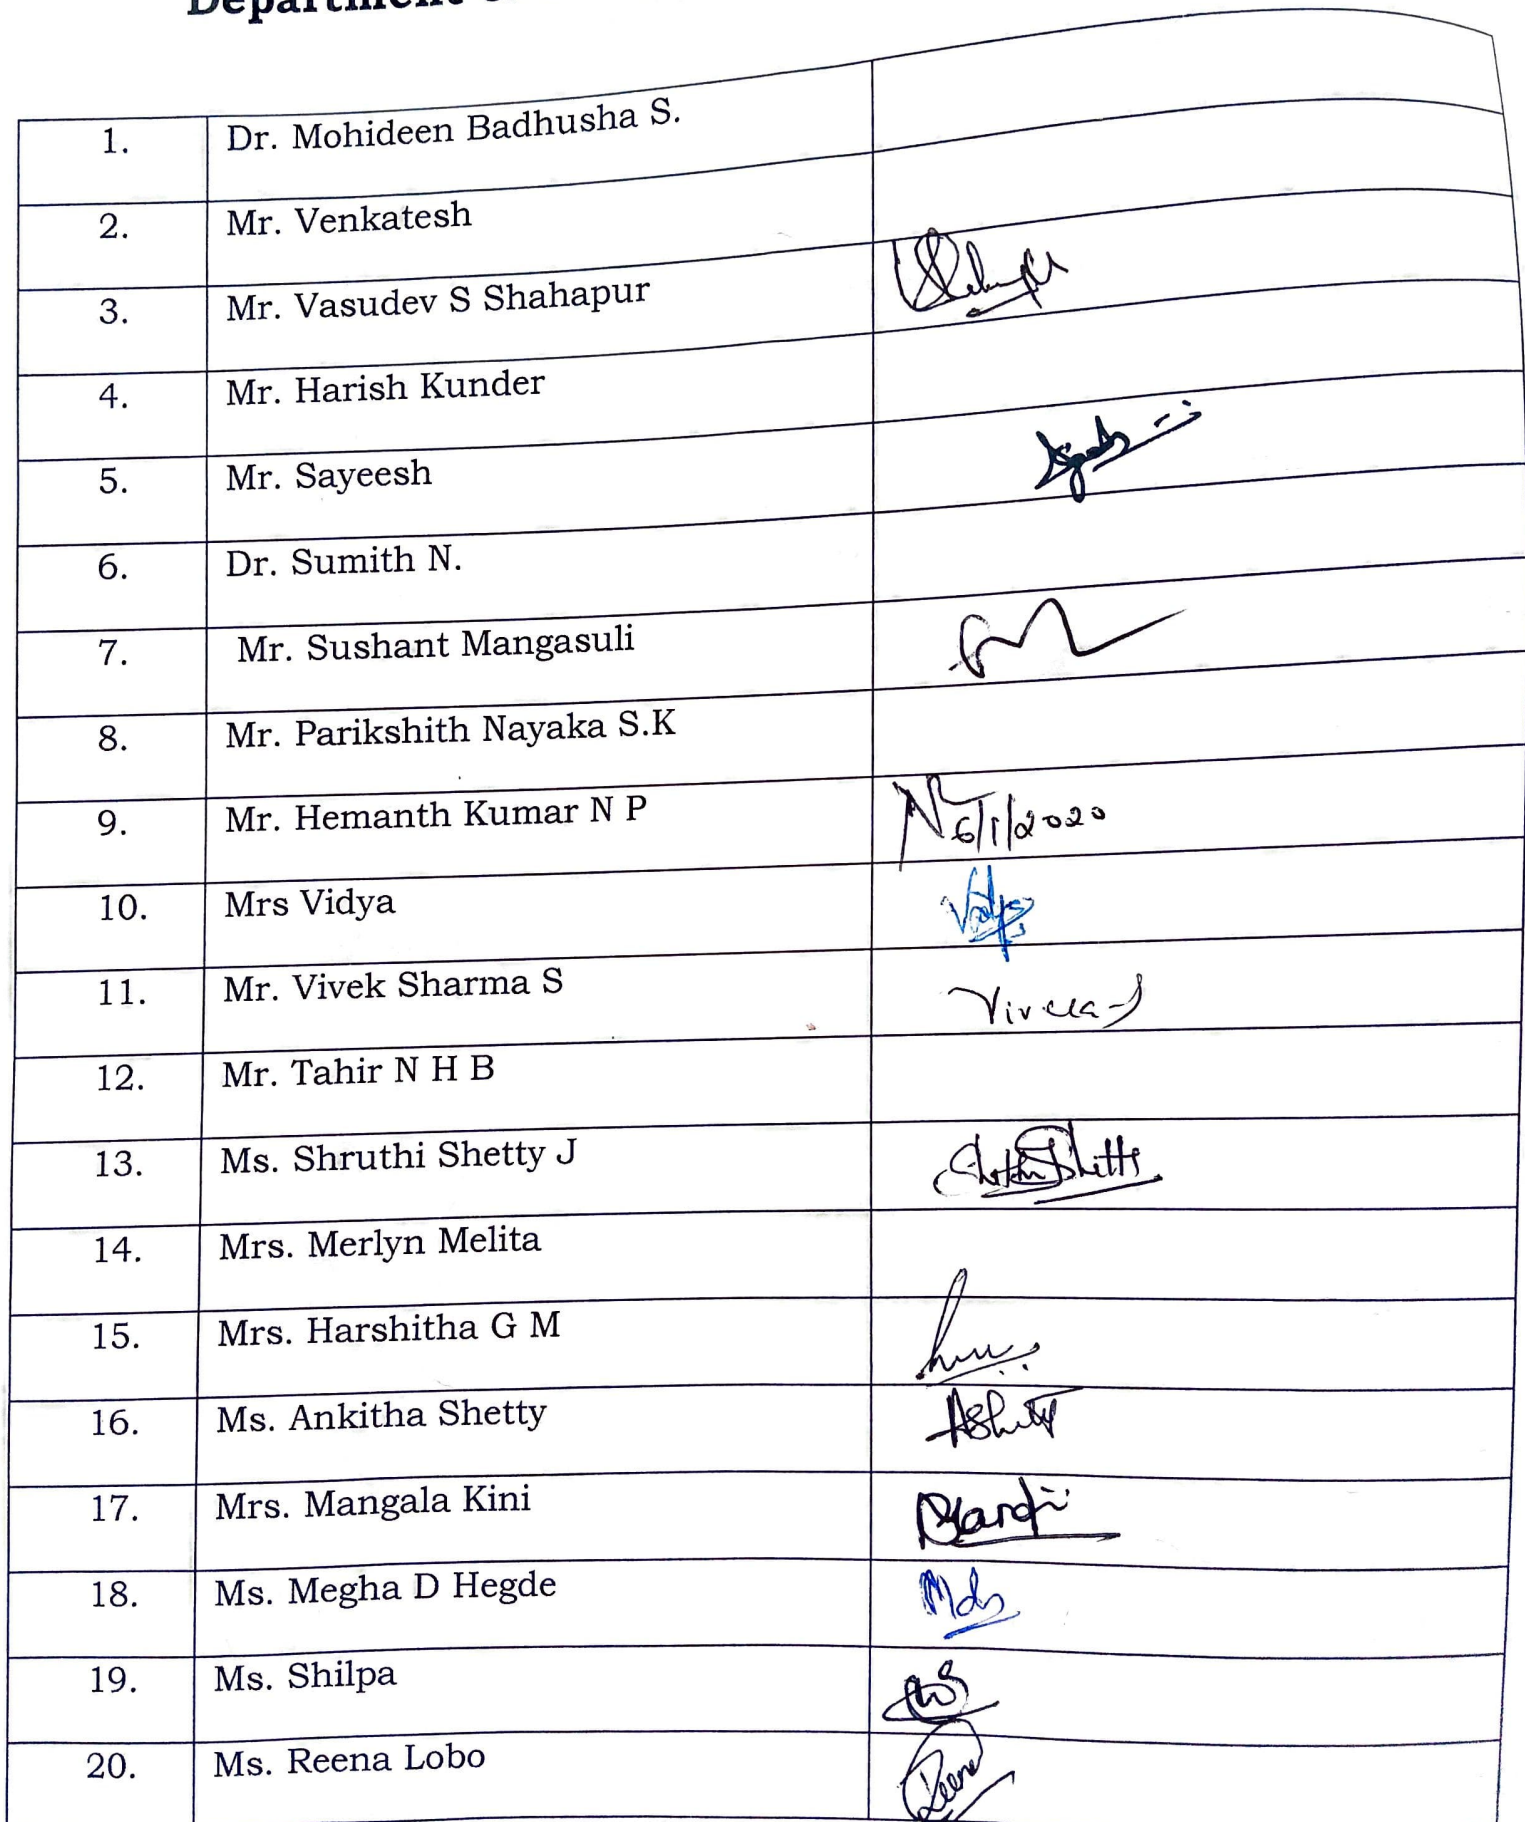 Department
1. Dr. Mohideen Badhusha S.
2. Mr. Venkatesh
3. Mr. Vasudev S Shahapur
4. Mr. Harish Kunder
5. Mr. Sayeesh
6. Dr. Sumith N.
7. Mr. Sushant Mangasuli
8. Mr. Parikshith Nayaka S.K
9. Mr. Hemanth Kumar N P 6/1/2020
10. Mrs Vidya
11. Mr. Vivek Sharma S
12. Mr. Tahir N H B
13. Ms. Shruthi Shetty J
14. Mrs. Merlyn Melita
15. Mrs. Harshitha G M
16. Ms. Ankitha Shetty
17. Mrs. Mangala Kini
18. Ms. Megha D Hegde
19. Ms. Shilpa
20. Ms. Reena Lobo